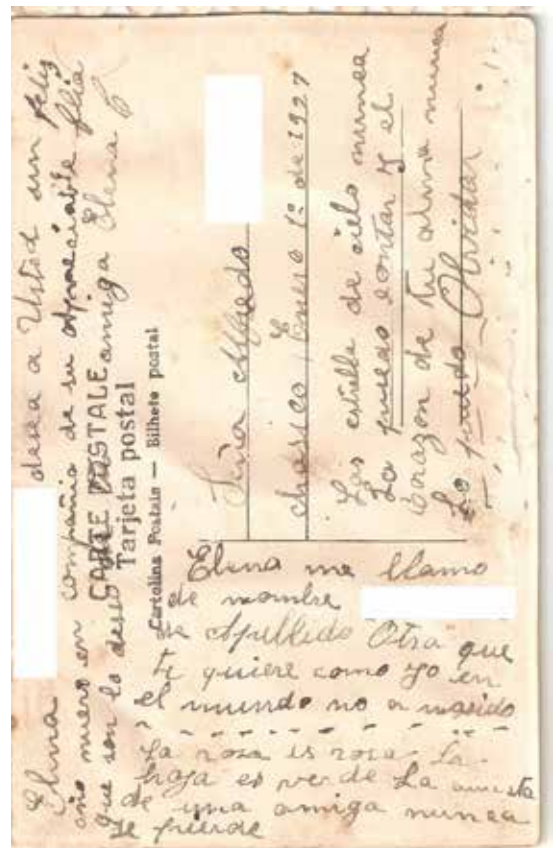 Elina desea a Usted un feliz
año nuevo en compañia de su apreciable flia
que son lo deseo amiga Elena C
CARTE POSTALE
Tarjeta postal
Cartolina Postale — Bilhete postal
Alfredo
Enero 1º de 1927
Las estrella de cielo nunca
Lo puedo contar y el
corazon de tu alma nunca
Lo puedo Olvidar
Elena me llamo
de nombre
de Apellido Otra que
te quiere como yo en
el mundo no a nasido
La rosa es rosa La
hoja es verde La
de una amiga nunca
se pierde